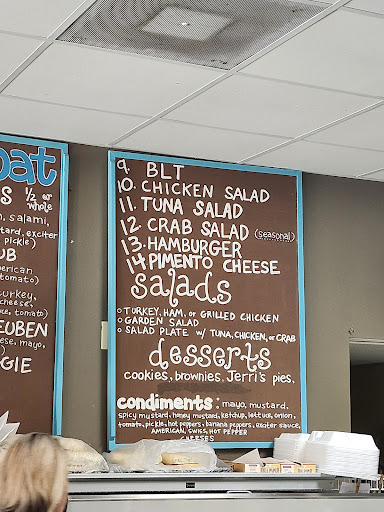 oat
s 1/2 or whole
, salami,
tard, exciter
pickle)
UB
erican
tomato)
turkey,
cheese,
uce, tomato)
EUBEN
ese, mayo,
GIE
9. BLT
10. CHICKEN SALAD
11. TUNA SALAD
12. CRAB SALAD (seasonal)
13. HAMBURGER
14. PIMENTO CHEESE
salads
o TURKEY, HAM, OR GRILLED CHICKEN
o GARDEN SALAD
o SALAD PLATE w/ TUNA, CHICKEN, or CRAB
desserts
cookies, brownies, Jerri's pies.
condiments: mayo, mustard,
spicy mustard, honey mustard, ketchup, lettuce, onion,
tomato, pickle, hot peppers, banana peppers, exciter sauce,
AMERICAN, SWISS, HOT PEPPER
CHEESES